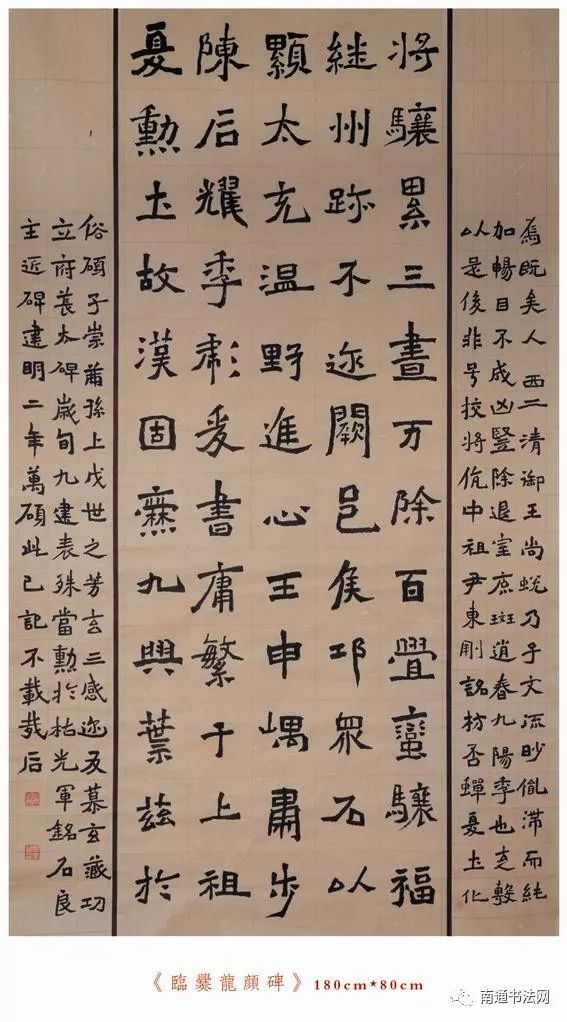 焉既矣人西二清御王尚蜕乃子文流眇胤滞而純
加暢日不成凶豎除退室庶斑逍春九陽季也轂
以是後非号挍將伉中祖尹東剛銘枋否蟬夏土化
将驤累三晝万除百疊蠻驤福
継州跡不迩闕邑侯邛眾石以
顯太充温野進心王申嵎肅步
陳后耀季彪爰書庸繁于上祖
夏勳土故漢固九興葉茲於
俗碩子崇孫上戊世之芳玄三感迩友慕玄藏功
立府萇太碑歲旬九建表殊當勳於枯光軍銘石良
主近碑建明二年萬碩此已記不載哉后
《臨爨龍顔碑》180cm*80cm
南通书法网